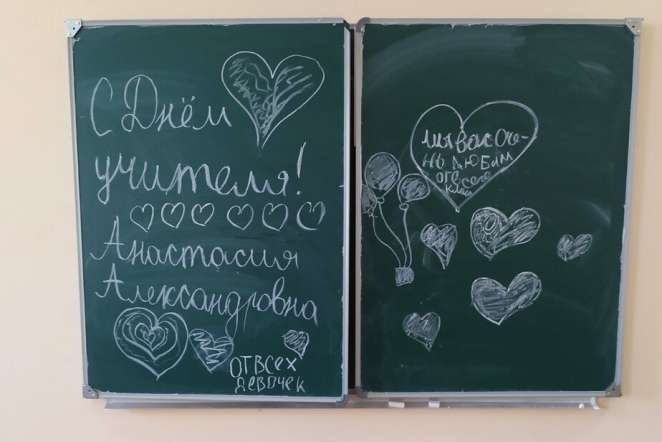 С Днём
учителя!
Анастасия
Александровна
ОТ ВСЕХ
девочек
мы вас оче-
нь любим
от всего
класса